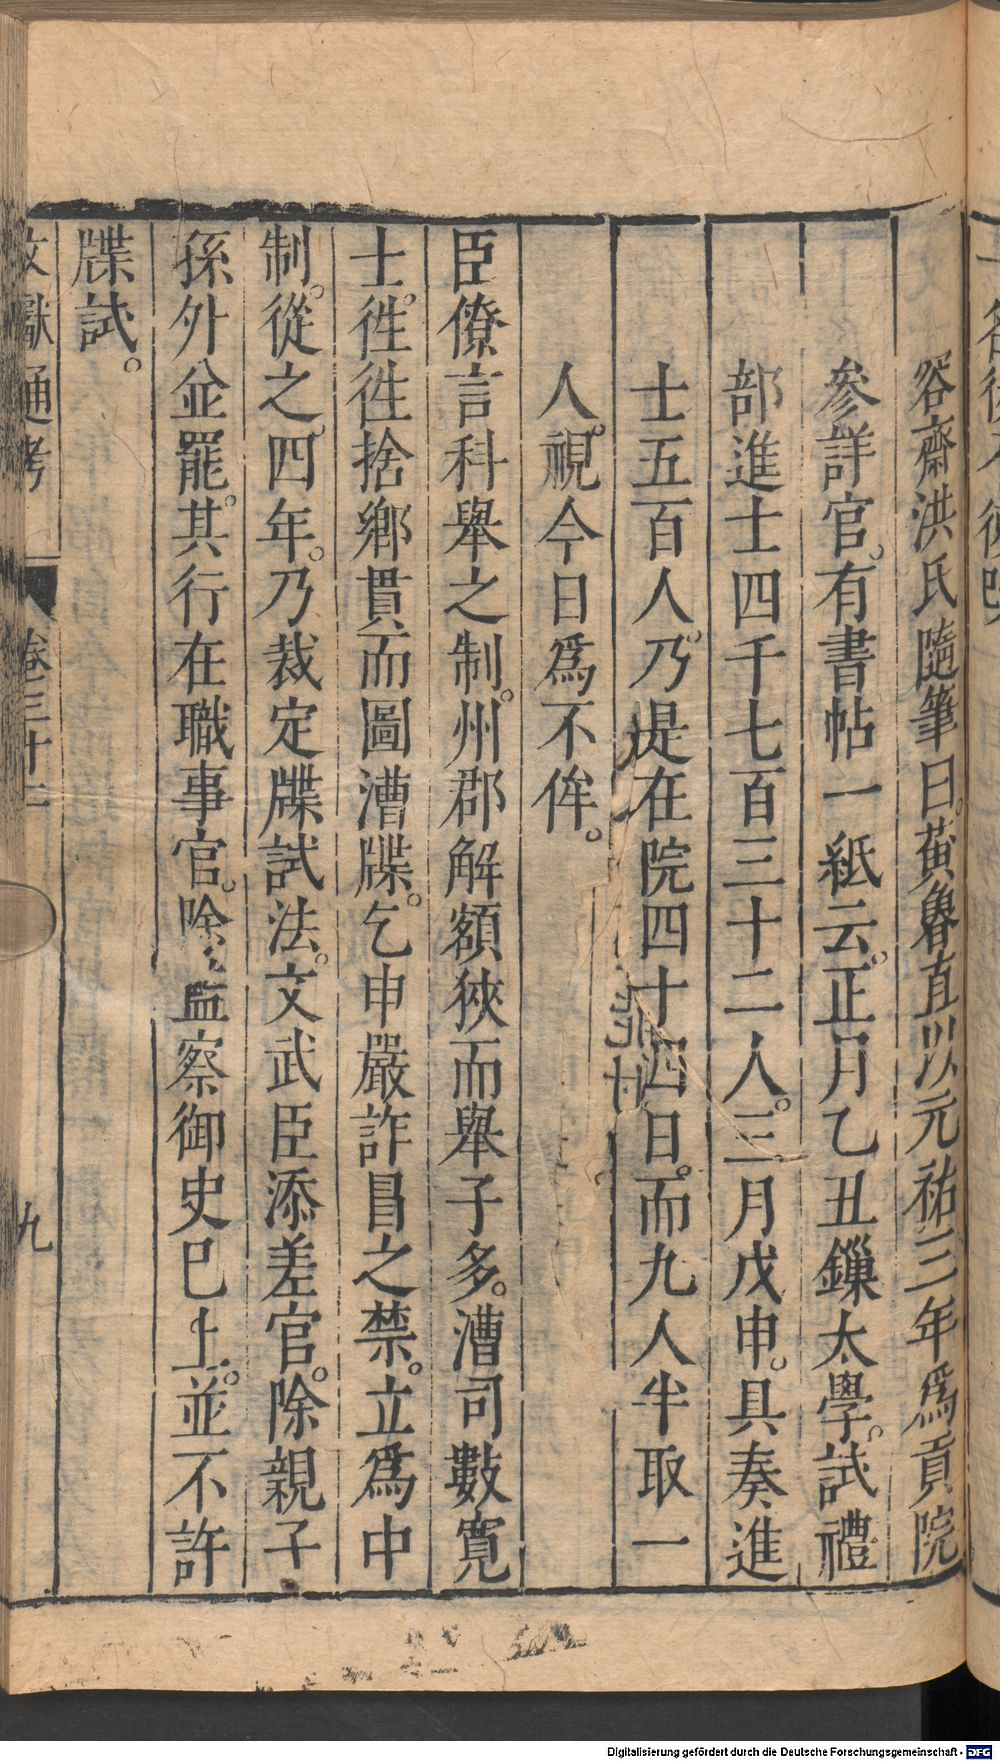 容齋洪氏隨筆曰黃魯直以元祐三年爲貢院
參詳官。有書帖一紙云。正月乙丑鏁太學。試禮
部進士四千七百三十二人。三月戊申。具奏進
士五百人。乃是在院四十四日。而九人半取一
人。視今日爲不侔。
臣僚言科舉之制。州郡解額狹而舉子多。漕司數寬
士。徃徃捨鄉貫而圖漕牒。乞申嚴詐冒之禁。立爲中
制。從之。四年。乃裁定牒試法。文武臣添差官。除親子
孫外並罷。其行在職事官。除監察御史巳上。並不許
牒試。
文獻通考 卷三十二 九
Digitalisierung gefördert durch die Deutsche Forschungsgemeinschaft - DFG